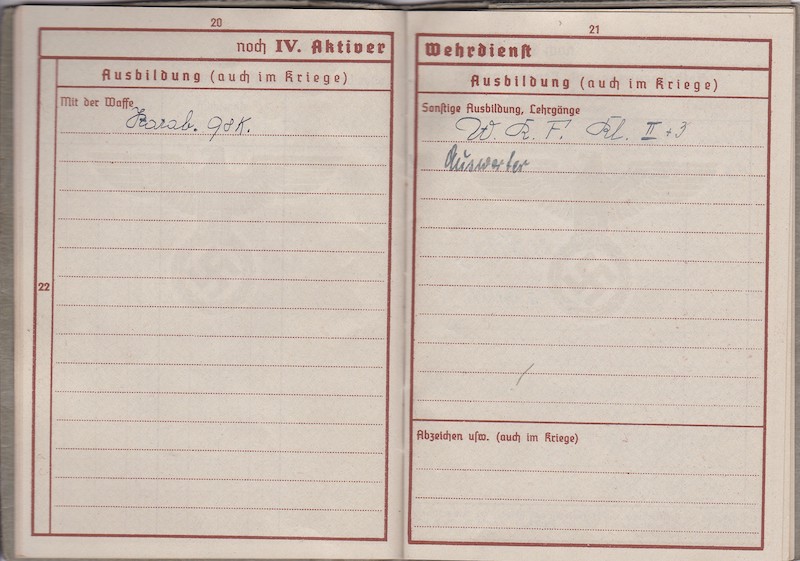 20
noch IV. Aktiver
Ausbildung (auch im Kriege)
Mit der Waffe
Karab. 98K.
22
21
Wehrdienst
Ausbildung (auch im Kriege)
Sonstige Ausbildung, Lehrgänge
W. K. F. Kl. II + 3
Auswerter
Abzeichen usw. (auch im Kriege)